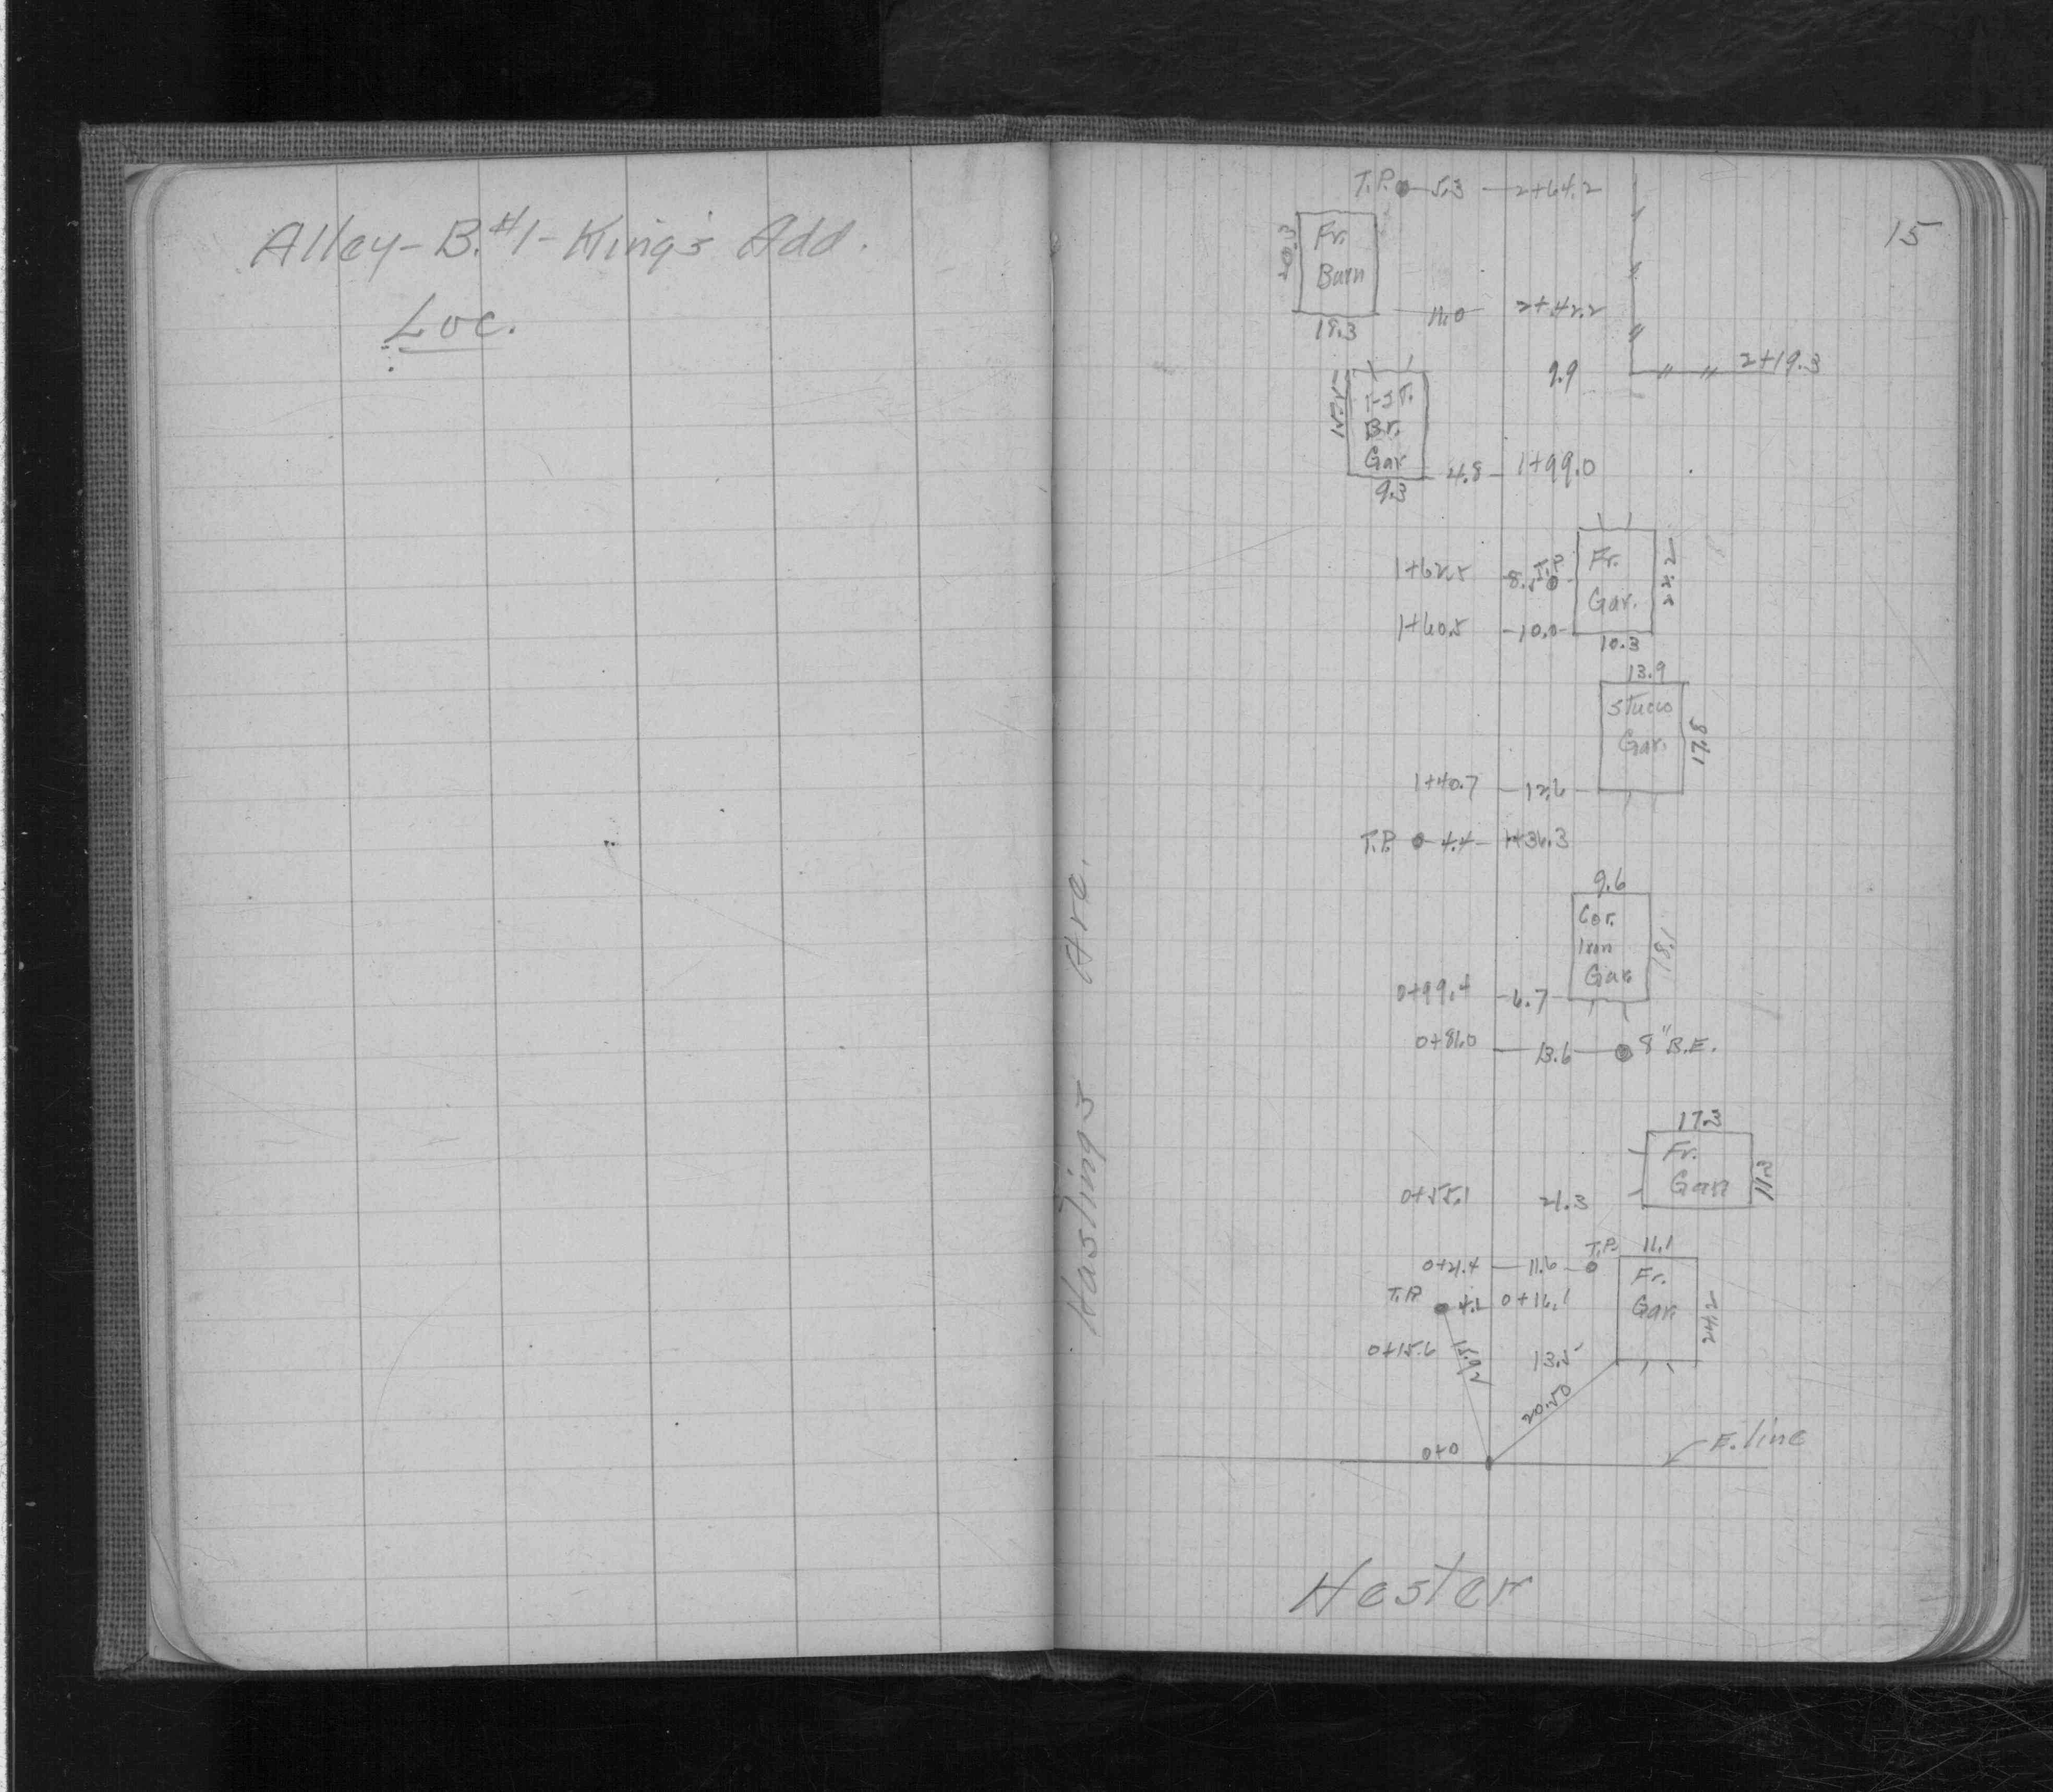 Alley - B.#1 - King's Add.
Loc.
15
T.P. 5.3 2+64.2
Fr.
Barn
20.3
19.3
11.0 2+42.2
9.9
2+19.3
1-ST.
Br.
Gar
9.3
4.8 1+99.0
1+62.5 8.5 T.P.
Fr.
Gar.
22.2
1+60.5 10.0
10.3
13.9
Stucco
Gar.
17.8
1+40.7 12.6
T.P. 4.4 1+36.3
9.6
Cor.
Iron
Gar.
18.1
0+99.4 6.7
0+81.0 13.6 8" B.E.
17.3
Fr.
Gar.
11.3
0+55.1 21.3
0+21.4 11.6 T.P. 11.1
Fr.
Gar.
24.2
T.P. 4.2 0+16.1
0+15.6 15.92 13.5
20.50
0+0
E. line
Hastings Ave.
Hester